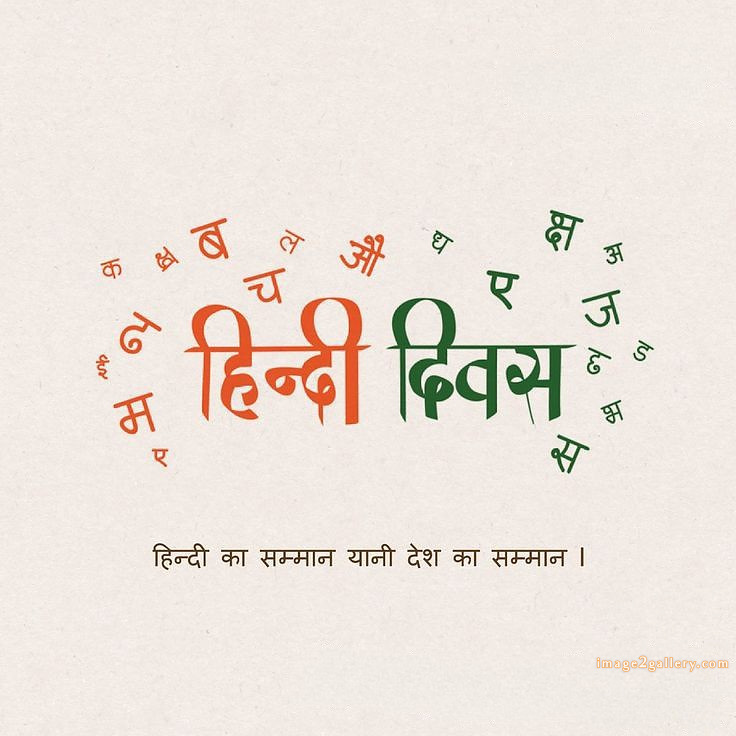 क ख ब ल औ ध क्ष अ
च ए ज
ई अ ड
म भ
ए स
हिन्दी दिवस
हिन्दी का सम्मान यानी देश का सम्मान ।
image2gallery.com